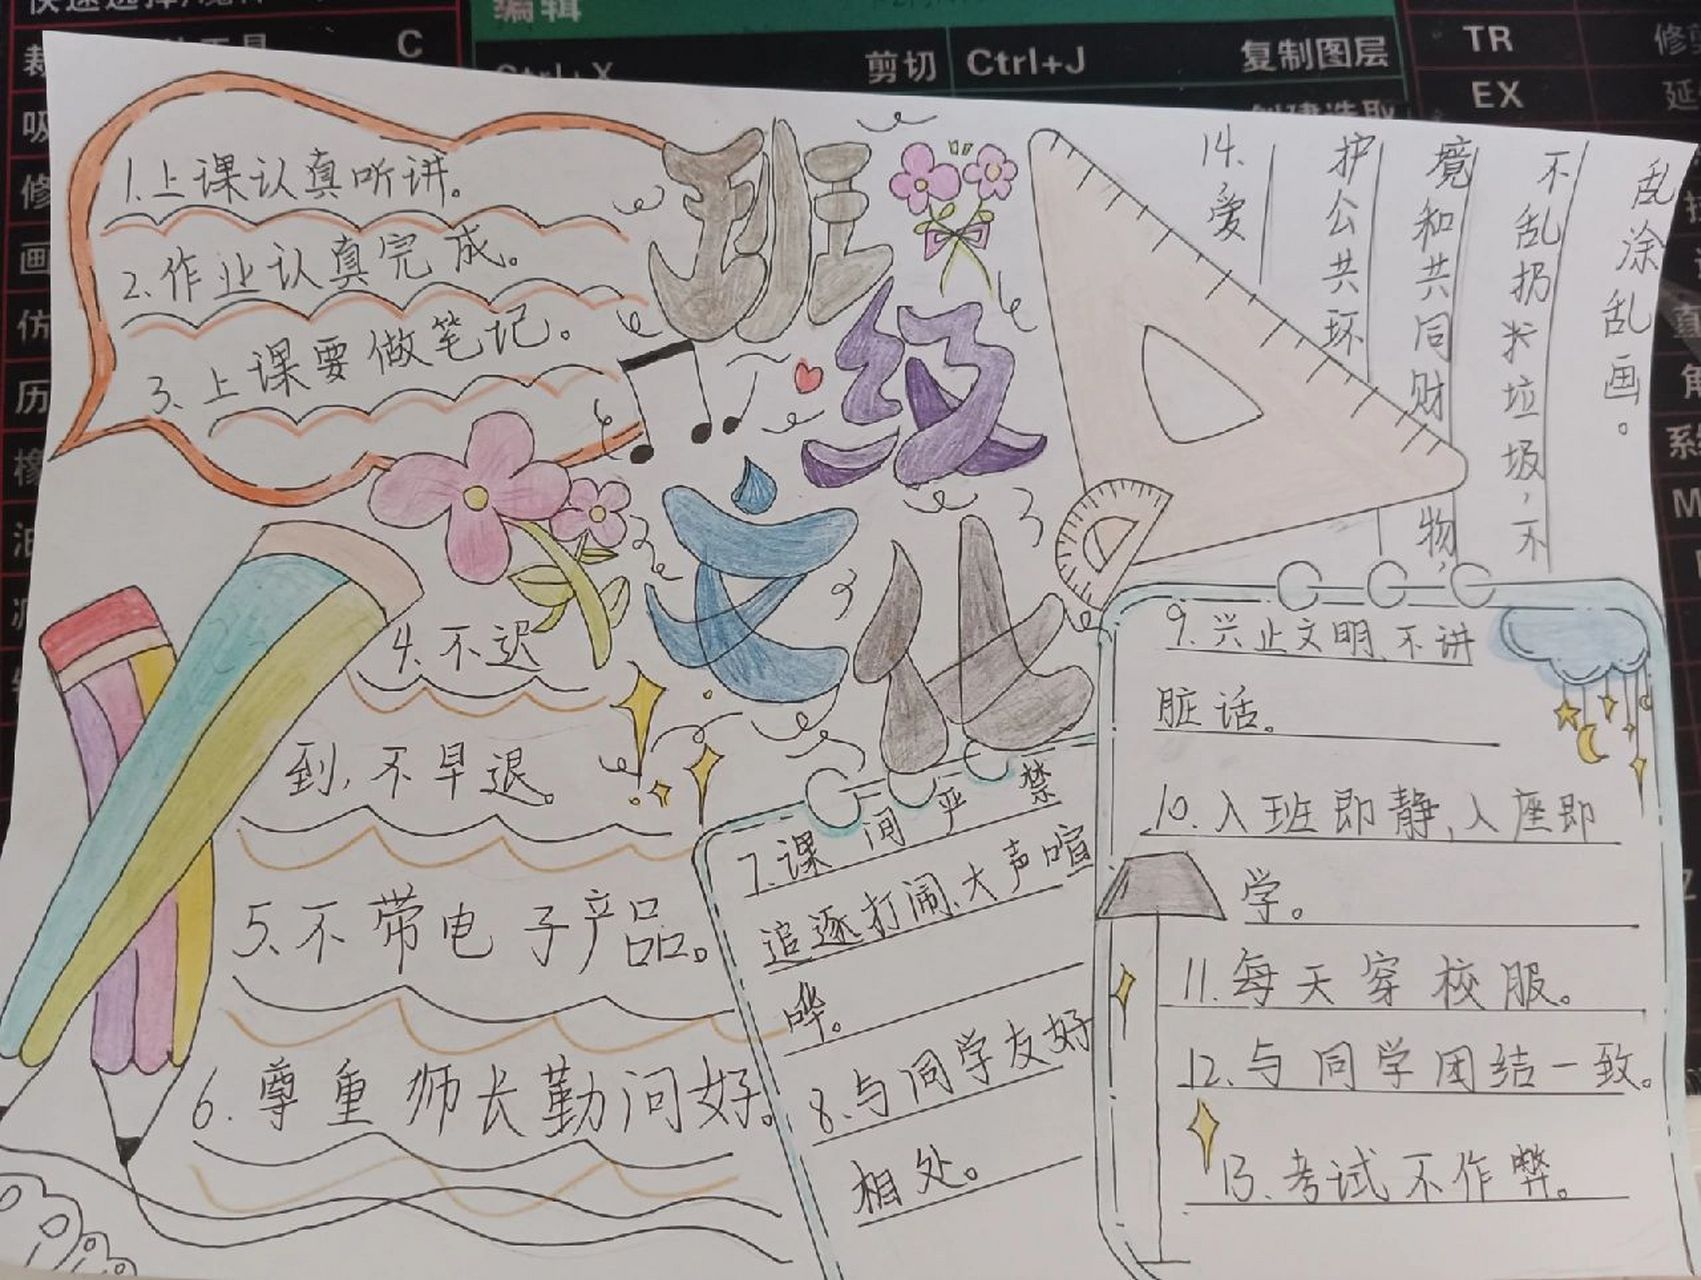 编辑
C
剪切
Ctrl+J
复制图层
TR
EX
班级文化
1.上课认真听讲。
2.作业认真完成。
3、上课要做笔记。
4、不迟
到,不早退。
5、不带电子产品。
6.尊重师长勤问好。
7.课间严禁
追逐打闹、大声喧
哗。
8、与同学友好
相处。
9、兴止文明、不讲
脏话。
10.入班即静,入座即
学。
11.每天穿校服。
12.与同学团结一致。
13、考试不作弊。
14.爱
护公共环
境和共同财物,
不乱扔垃圾,不
乱涂乱画。